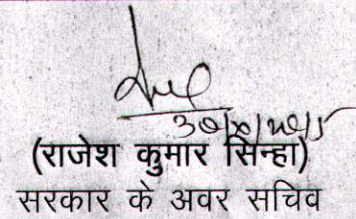 (राजेश कुमार सिन्हा)
सरकार के अवर सचिव